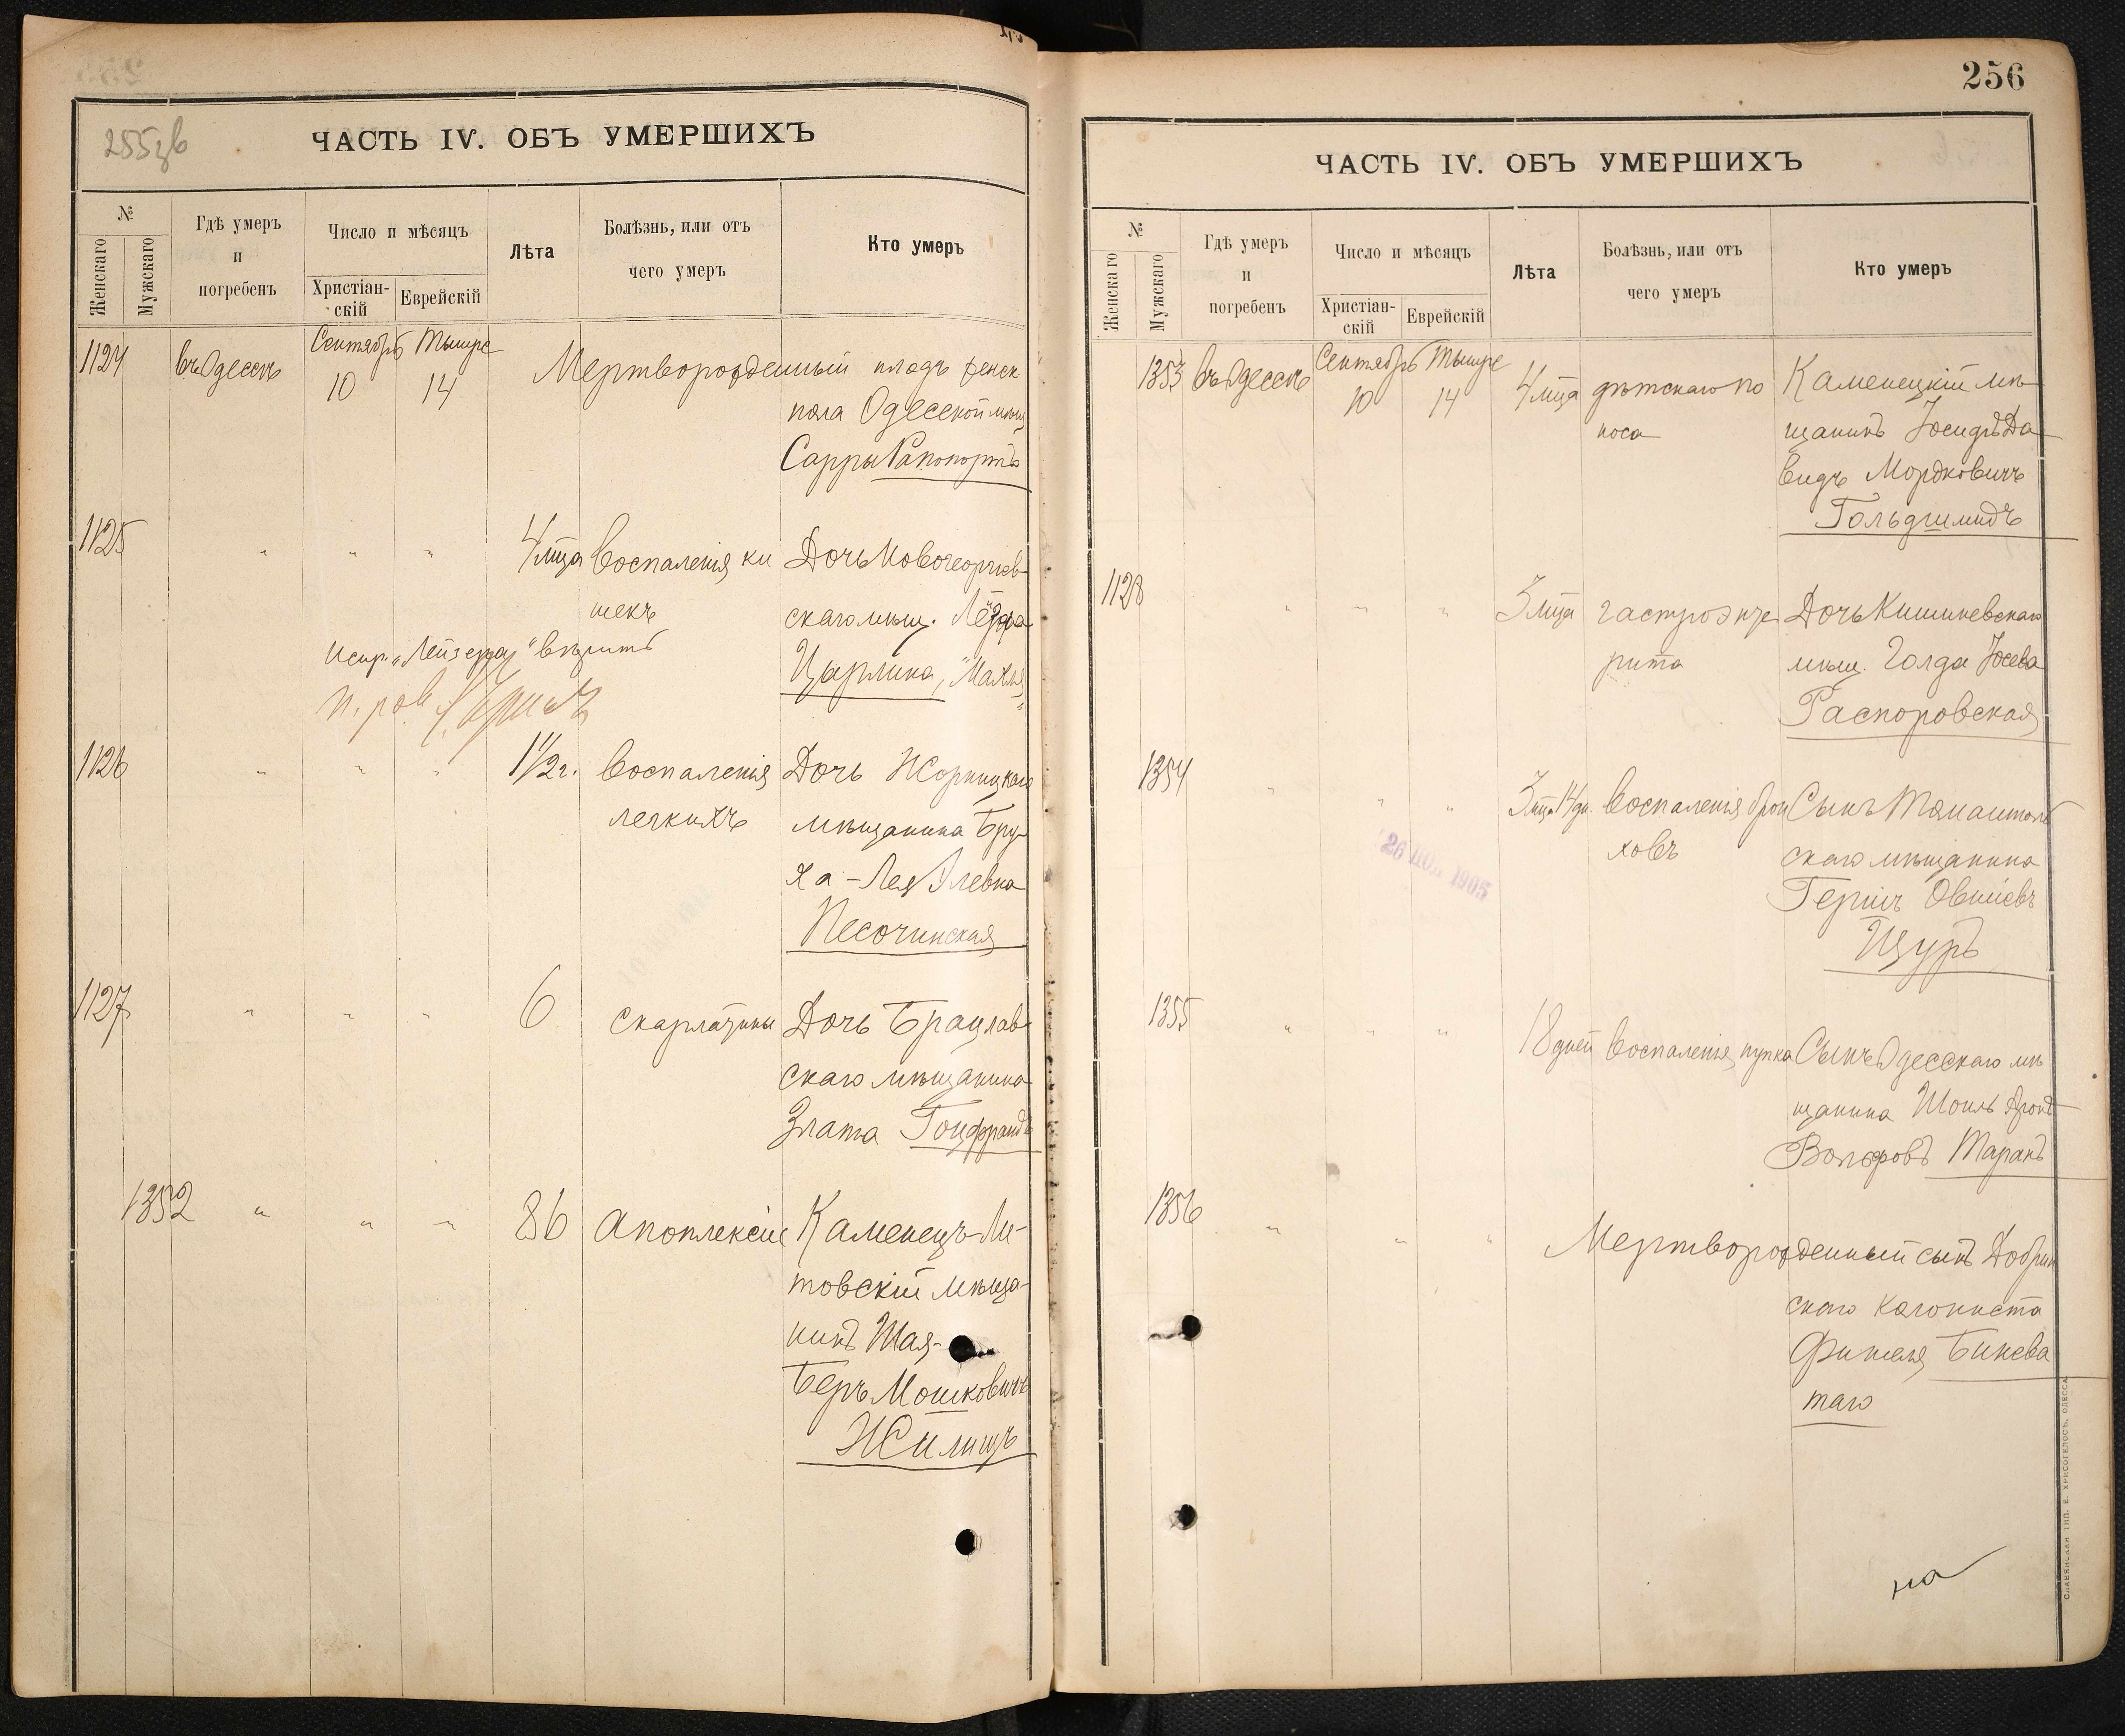 255зв
ЧАСТЬ IV. ОБЪ УМЕРШИХЪ
№
Женскаго
Мужскаго
Гдѣ умеръ
и
погребенъ
Число и мѣсяцъ
Христіан-
скій
Еврейскій
Лѣта
Болѣзнь, или отъ
чего умеръ
Кто умеръ
1124 въ Одессѣ Сентябрь 10 Тышре 14 Мертворожденный плодъ женск
пола Одесской мѣщ
Сарры Рапопортъ
1125 " " " 4 мца Воспаленія ки Дочь Новогеоргіев
шекъ скаго мѣщ.
Испр. "Лейзера" вѣрить Цырлина, "Махля"
1126 " " " 1 1/2 г. Воспаленія Дочь Жорнищкаго
легкихъ мѣщанина Бру
ха-Лея Элевна
Песочинская
1127 " " " 6 Скарлатины Дочь Брацлав
скаго мѣщанина
Злата Гоцфрандъ
1352 " " " 86 Апоплексіи Каменецъ-Ли-
товскій мѣща-
нинъ Шая-
Беръ Мошковичъ
Жилищъ
256
ЧАСТЬ IV. ОБЪ УМЕРШИХЪ
№
Женскаго
Мужскаго
Гдѣ умеръ
и
погребенъ
Число и мѣсяцъ
Христіан-
скій
Еврейскій
Лѣта
Болѣзнь, или отъ
чего умеръ
Кто умеръ
1353 въ Одессѣ Сентябрь 10 Тышре 14 4 мца дѣтскаго по Каменецкій мѣ
носа щанинъ Іосифъ Да
видъ Мордковичъ
Гольдшмидъ
1128 " " " 3 мца гастроэнте Дочь Кишиневскаго
рита мѣщ. Голда Іосева
Распоровская
1354 " " " 3 мца 14 дн. Воспаленія брон Сынъ Томашполь
ховъ скаго мѣщанина
Гершъ Овшіевъ
Щуръ
26 НОЯ 1905
1355 " " " 18 дней Воспаленія пупка Сынъ Одесскаго мѣ
щанина Шоиль Аронъ
Вольфовъ Таранъ
1356 " " " Мертворожденный сынъ Добрин
скаго колониста
Фишеля Бинева
таго
на
СЛАВЯНСКАЯ ТИП. Е. ХРИСОГЕЛОСЪ, ОДЕССА